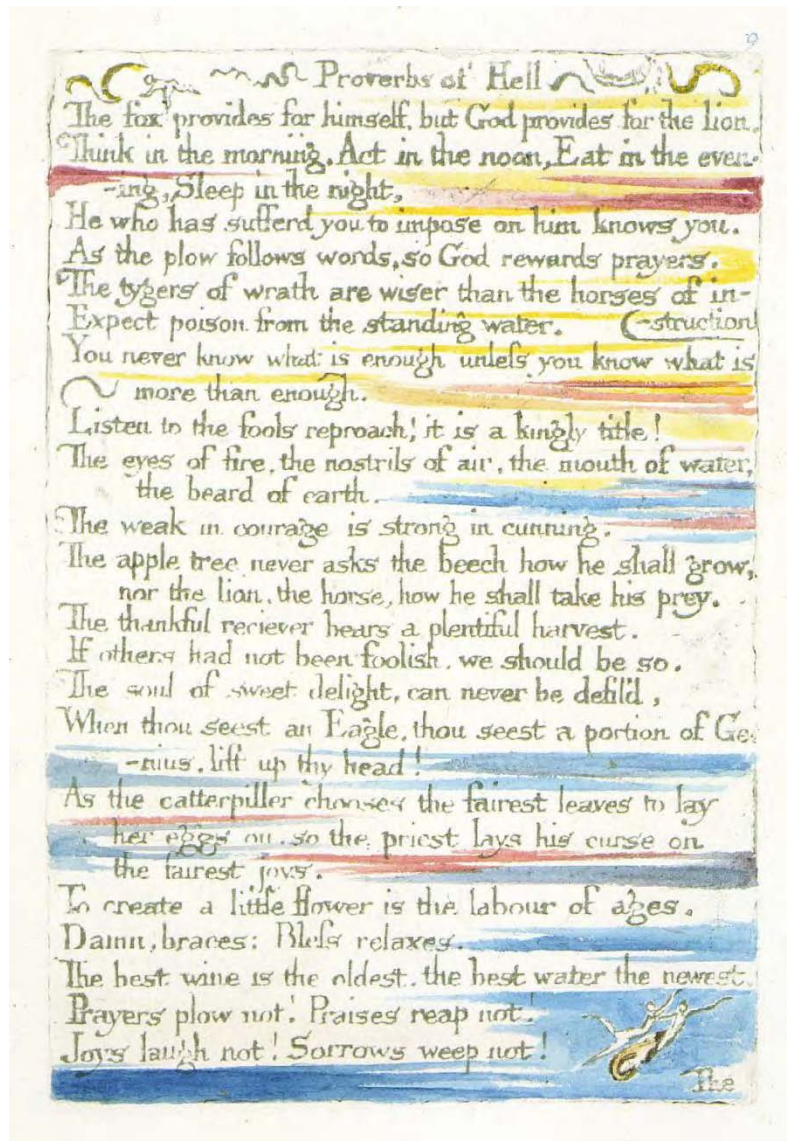 9
Proverbs of Hell
The fox provides for himself, but God provides for the lion.
Think in the morning, Act in the noon, Eat in the even-
-ing, Sleep in the night,
He who has sufferd you to impose on him knows you.
As the plow follows words, so God rewards prayers.
The tygers of wrath are wiser than the horses of in-
Expect poison from the standing water. (-struction
You never know what is enough unless you know what is
more than enough.
Listen to the fools reproach! it is a kingly title!
The eyes of fire, the nostrils of air, the mouth of water,
the beard of earth.
The weak in courage is strong in cunning.
The apple tree never asks the beech how he shall grow,
nor the lion, the horse, how he shall take his prey.
The thankful reciever bears a plentiful harvest.
If others had not been foolish, we should be so.
The soul of sweet delight, can never be defil'd,
When thou seest an Eagle, thou seest a portion of Ge-
-nius, lift up thy head!
As the catterpiller chooses the fairest leaves to lay
her eggs on, so the priest lays his curse on
the fairest joys.
To create a little flower is the labour of ages.
Damn, braces: Bless relaxes.
The best wine is the oldest, the best water the newest.
Prayers plow not! Praises reap not!
Joys laugh not! Sorrows weep not!
The